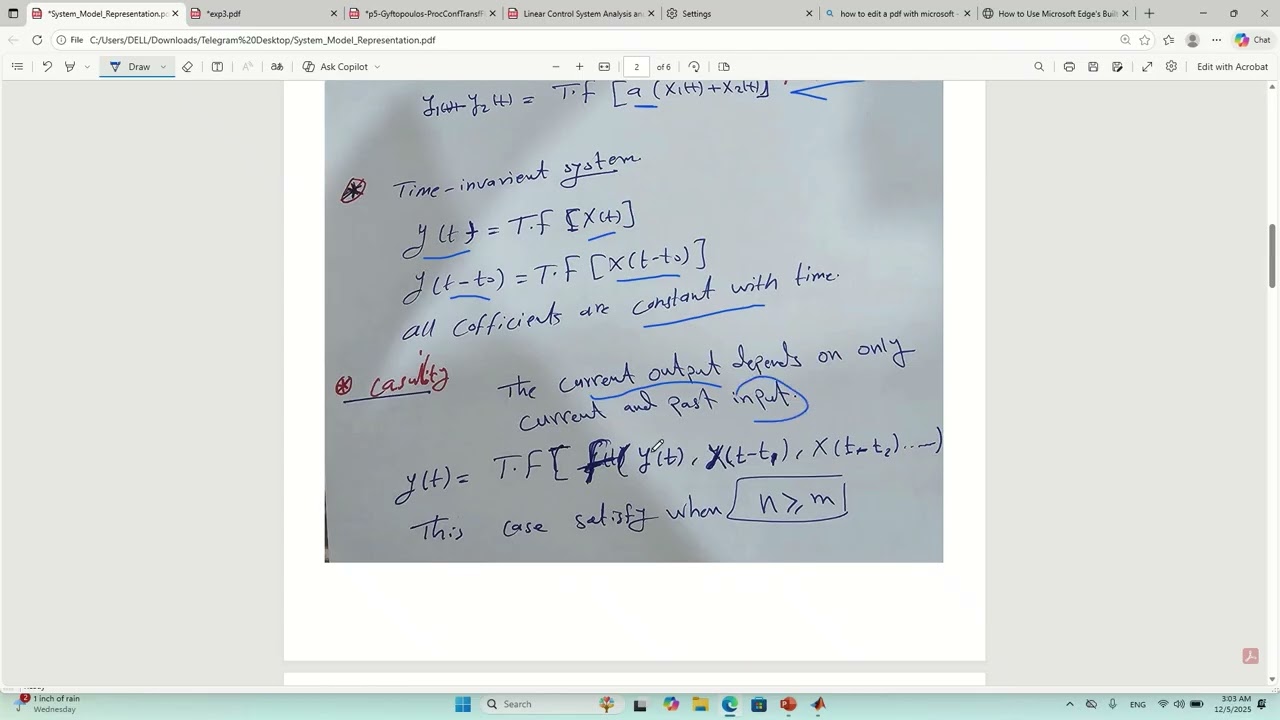 *System_Model_Representation.pdf
*exp3.pdf
*p5-Gyftopoulos-ProcConfTransfF
Linear Control System Analysis an
Settings
how to edit a pdf with microsoft
How to Use Microsoft Edge's Buil
File C:/Users/DELL/Downloads/Telegram%20Desktop/System_Model_Representation.pdf
Chat
Draw
Ask Copilot
2 of 6
Edit with Acrobat
y1(t)+y2(t) = T.f [a (x1(t)+x2(t)]
* Time-invarient system
y(t) = T.f [X(t)]
y(t-to) = T.F [X(t-to)]
all cofficients are constant with time.
* casulity
The current output depends on only
current and past input.
y(t) = T.F[ y(t), X(t-t1), X(t-t2) ....)
This case satisfy when n⩾m
1 inch of rain
Wednesday
Search
ENG
3:03 AM
12/5/2025